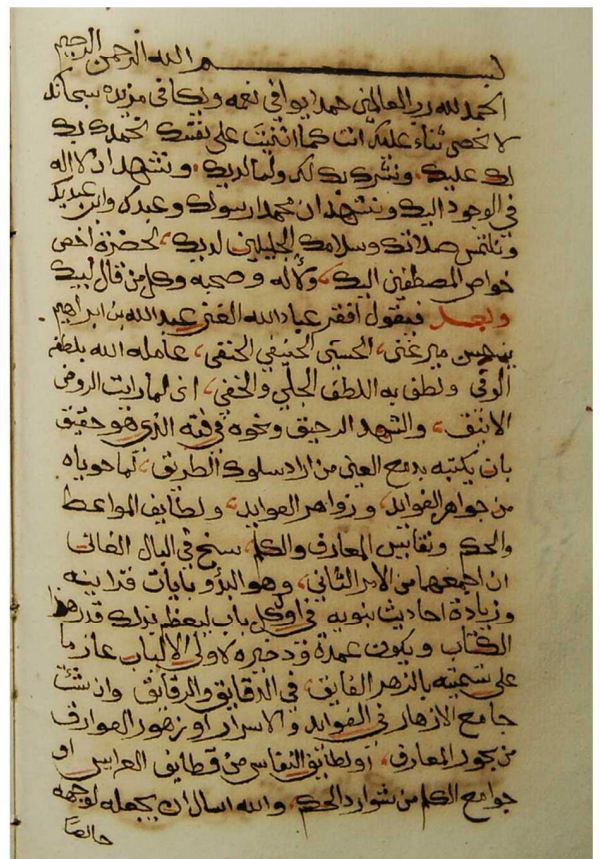 بسم الله الرحمن الرحيم
الحمد لله رب العالمين حمدا يوافي نعمه ويكافي مزيده سبحانك
لا نحصي ثناء عليك انت كما اثنيت على نفسك نحمدك بك
لك عليك ونشكرك بك لك ولما لديك ونشهد ان لا اله
في الوجود اليك ونشهد ان محمدا رسولك وعبدك وابن عبديك
ونلتمس صلاتك وسلامك الجليلين لديك لحضرة اخص
خواص المصطفين اليك ولآله وصحبه وكل من قال لبيك
وبعد فيقول افقر عباد الله الغني عبد الله بن ابراهيم
بن حسن مير غني الحسني الحنيفي الحنفي عامله الله بلطفه
الوفي ولطف به اللطف الجلي والخفي اني لما رايت الروض
الانيق والشهد الرحيق ونحوه في فنه الذي هو حقيق
بان يكتبه بدمع العين من اراد سلوك الطريق لما حوياه
من جواهر الفوايد وزواهر العوايد ولطايف المواعظ
والحكم ونفايس المعارف والكلم سنح في البال الفاني
ان اجمعهما من الامر الثاني وهو البدؤ بايات قرانيه
وزيادة احاديث نبويه في اول كل باب ليعظم بذلك قدر هذا
الكتاب ويكون عمدة وذخيره لاولي الالباب عازما
على تسميته بالزهر الفايق في الدقايق والرقايق وان شئت
جامع الازهار في الفوايد والاسرار او زهور العوارف
من بحور المعارف او لطايف النفايس من قطايف العرايس او
جوامع الكلم من شوارد الحكم والله اسال ان يجعله لوجهه
خالصا